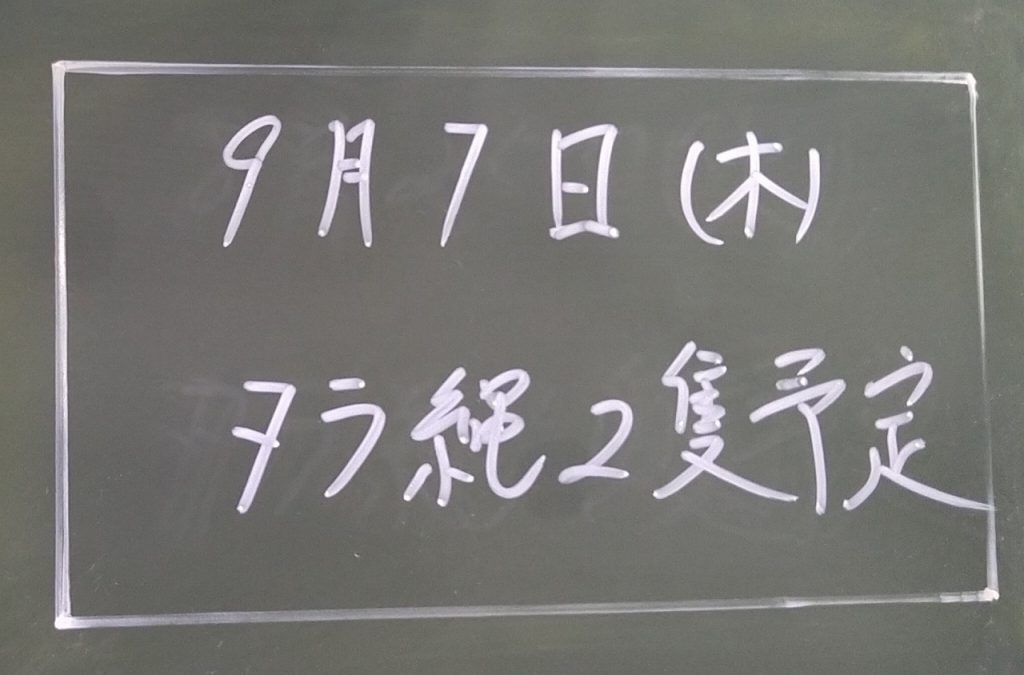 9月7日(木)
タラ縄2隻予定